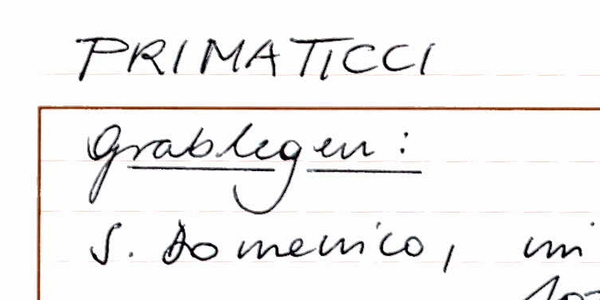 PRIMATICCI
Grablegen:
S. Domenico,